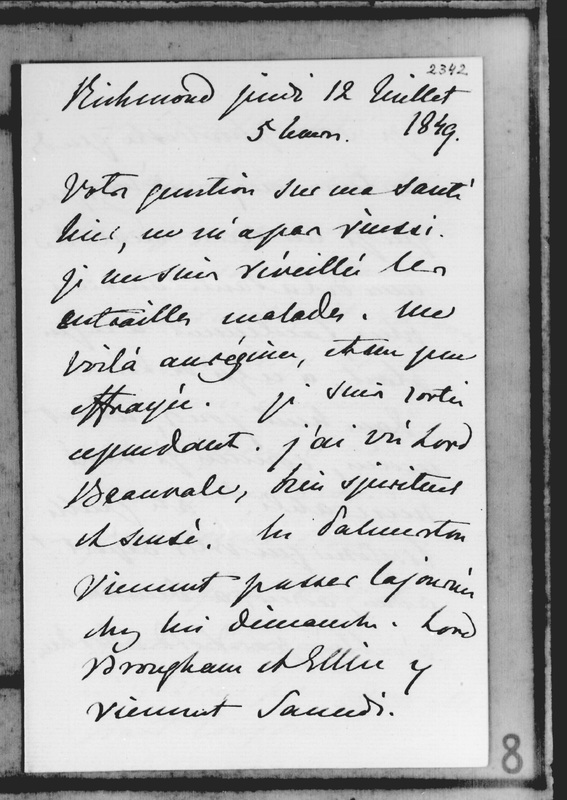 2342
Richmond jeudi 12 Juillet
5 heures. 1849.
Votre question sur ma santé
hier, ne m'a pas réussi.
je me suis réveillée les
entrailles malades. me
voilà au régime, et un peu
effrayée. je suis sortie
cependant. j'ai vu Lord
Beauvale, bien spirituel
et sensé. les Palmerston
viennent passer la journée
chez lui dimanche. Lord
Brougham et Ellice y
viennent Samedi.
8